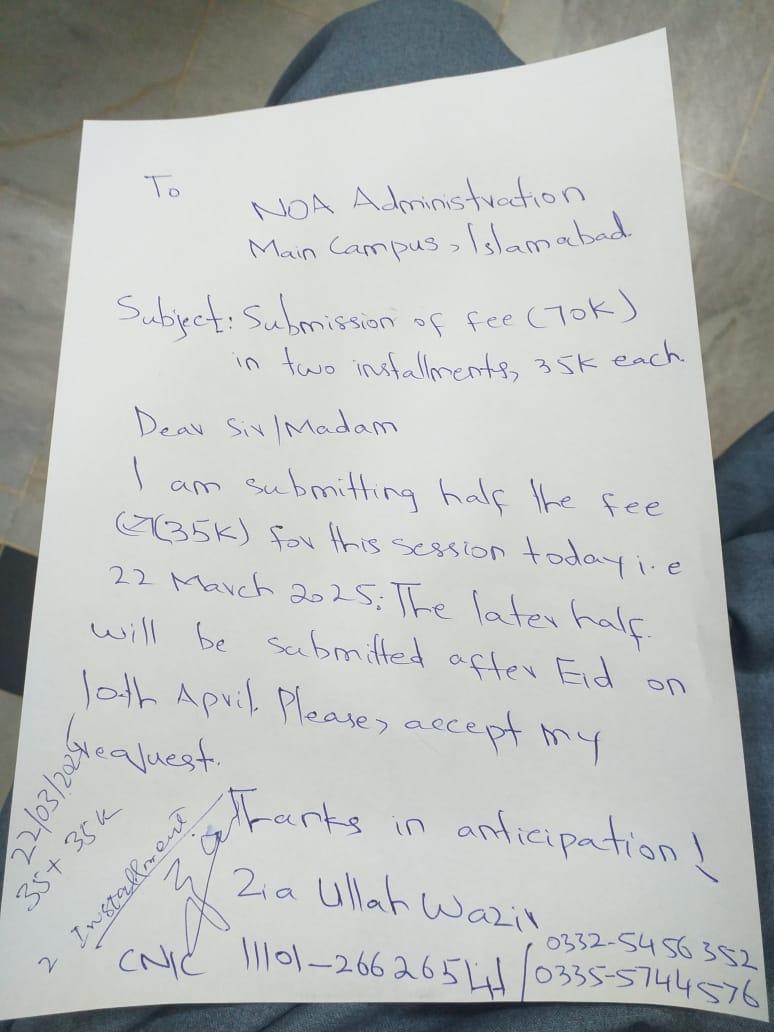 To
NOA Administration
Main Campus, Islamabad.
Subject: Submission of fee (70K)
in two installments, 35K each.
Dear Sir/Madam
I am submitting half the fee
(35K) for this session today i.e
22 March 2025. The later half
will be submitted after Eid on
10th April. Please, accept my
request.
Thanks in anticipation!
Zia Ullah Wazir
0332-5456352
CNIC 11101-2662654-/0335-5744576
22/03/2025
35+35K
2 Installment